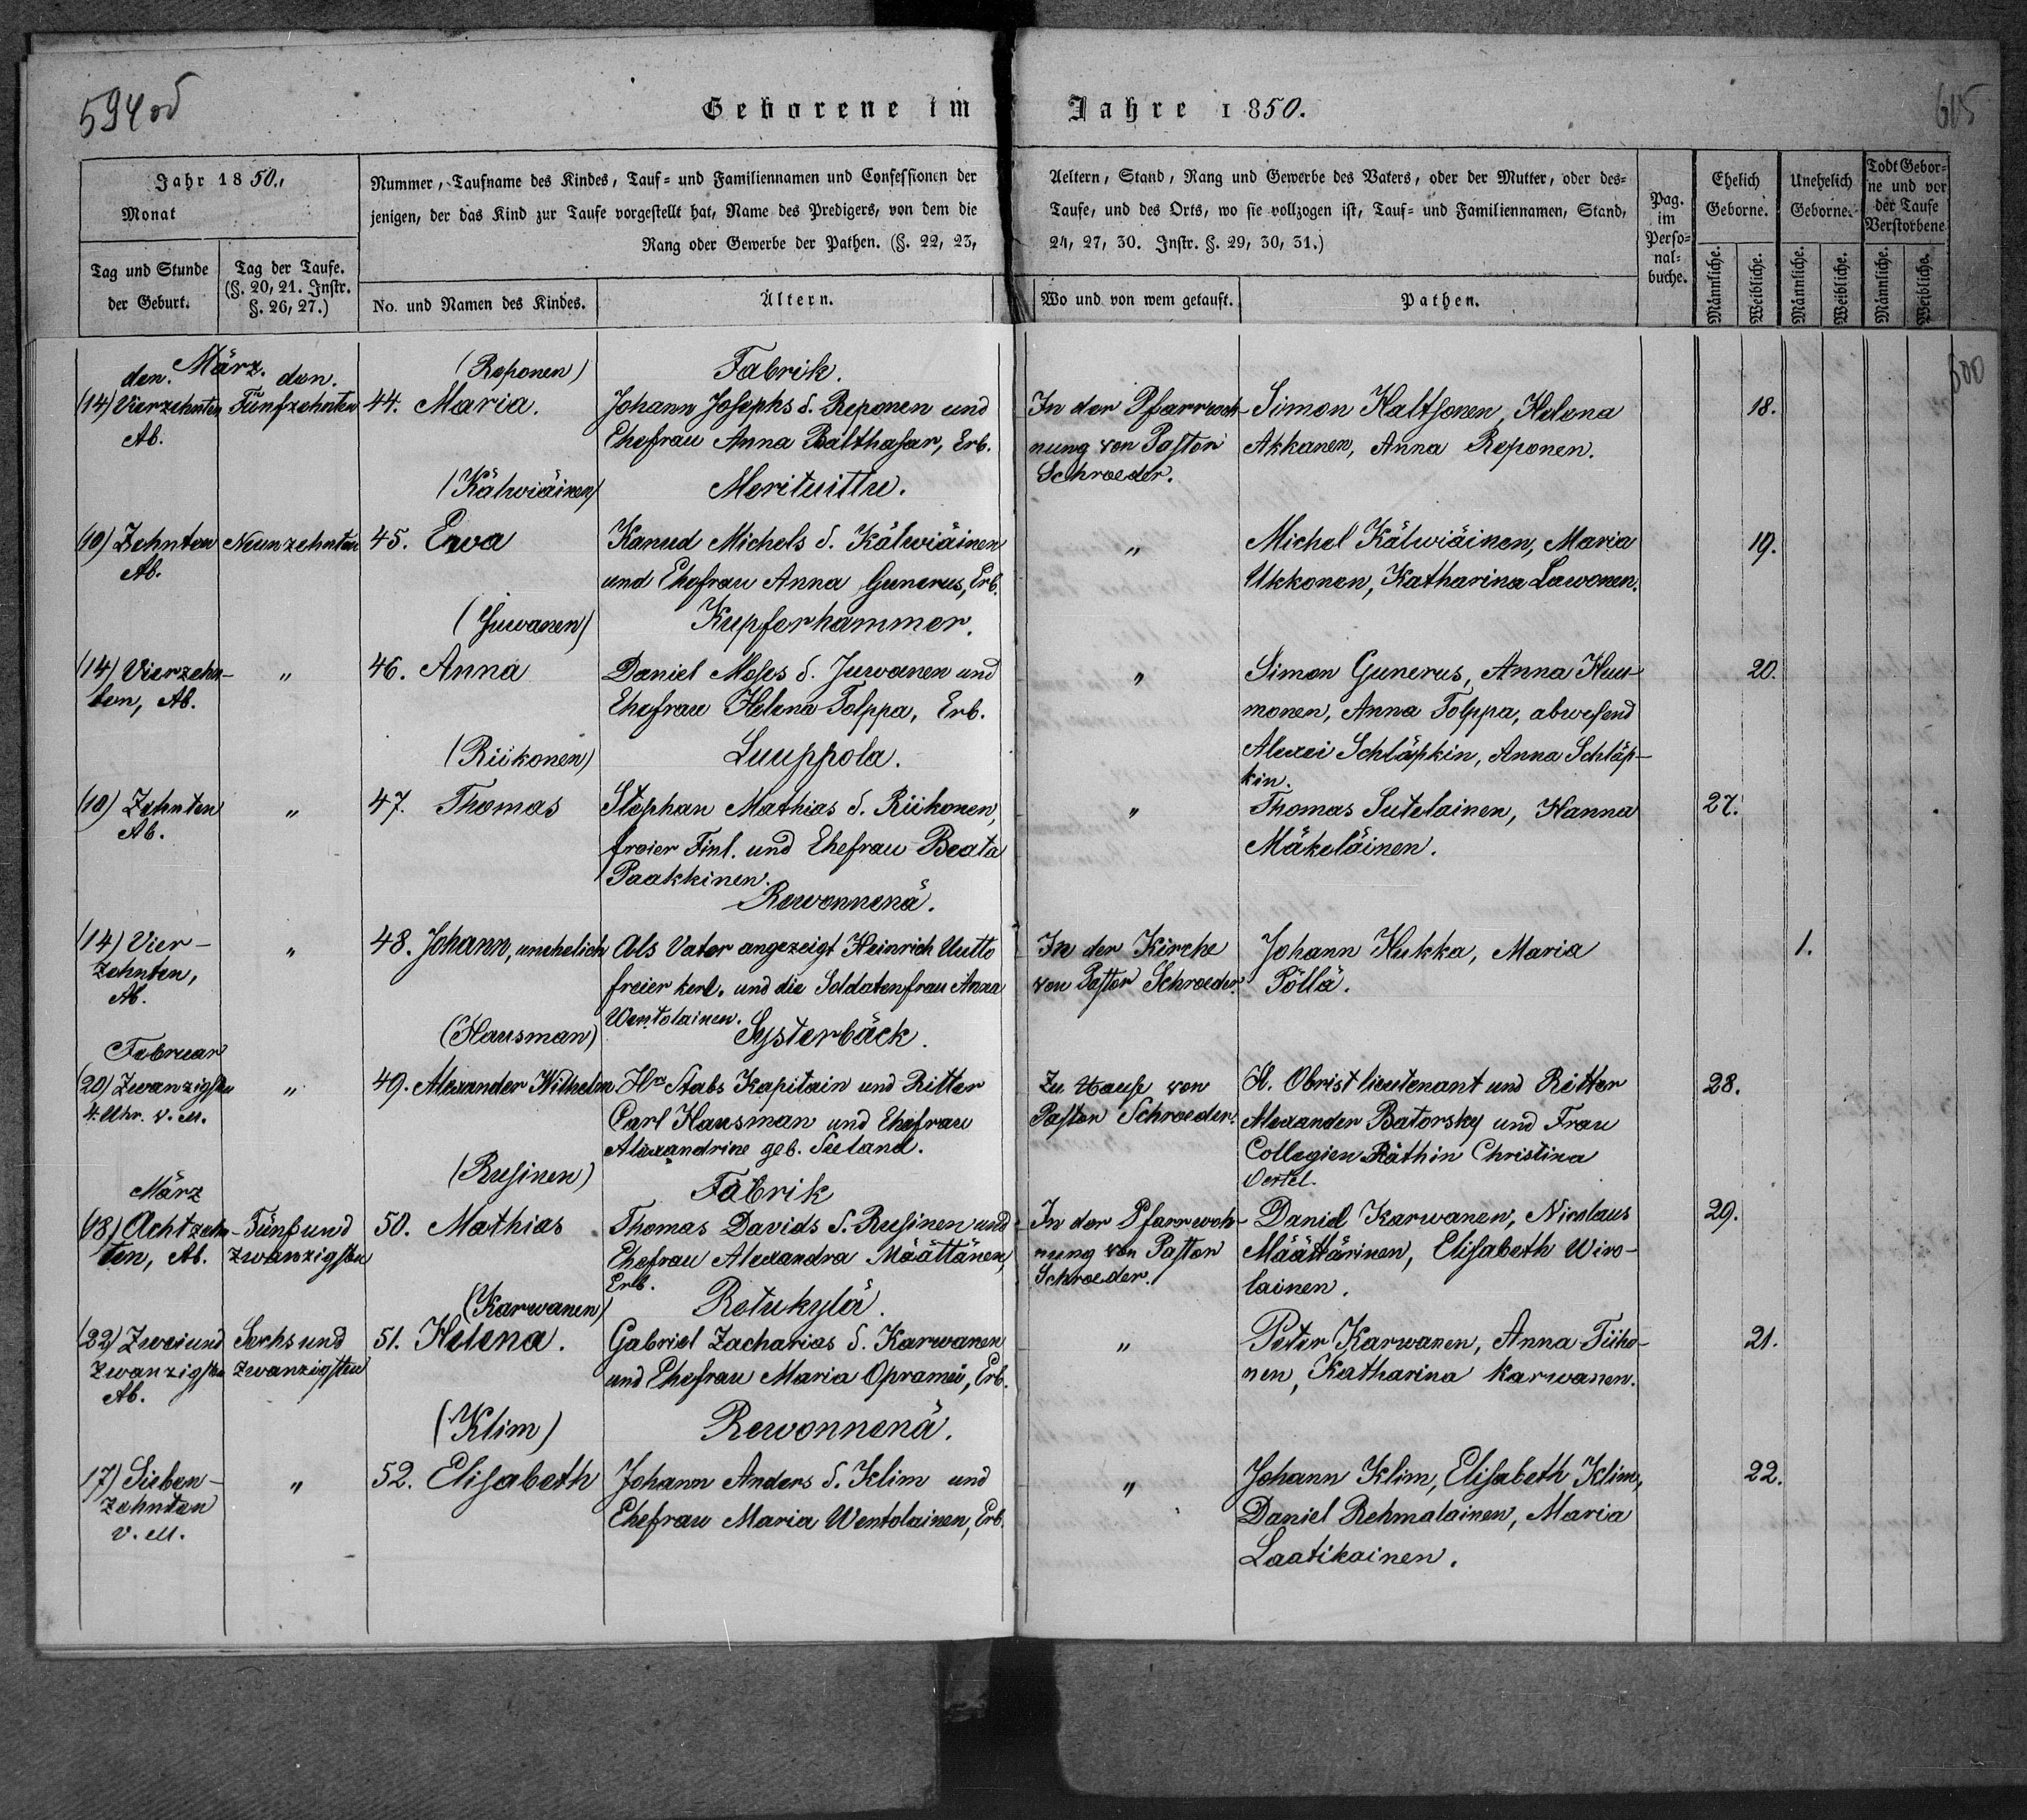 594 od
Geborene im Jahre 1850.
605
600
Jahr 1850.,
Monat
Tag und Stunde
der Geburt.
Tag der Taufe.
(§. 20, 21. Instr.
§. 26, 27.)
Nummer, Taufname des Kindes, Tauf= und Familiennamen und Confessionen der
jenigen, der das Kind zur Taufe vorgestellt hat, Name des Predigers, von dem die
Rang oder Gewerbe der Pathen. (§. 22, 23,
No. und Namen des Kindes.
Ältern.
Aeltern, Stand, Rang und Gewerbe des Vaters, oder der Mutter, oder des=
Taufe, und des Orts, wo sie vollzogen ist, Tauf= und Familiennamen, Stand,
24, 27, 30. Instr. §. 29, 30, 31.)
Wo und von wem getauft.
Pathen.
Pag.
im
Perso=
nal=
buche.
Ehelich
Geborne.
Unehelich
Geborne.
Todt Gebor=
ne und vor
der Taufe
Verstorbene
Männliche.
Weibliche.
Männliche.
Weibliche.
Männliche.
Weibliche.
März.
den. den.
(14) Vierzehnten
Ab.
Fünfzehnten
(Reponen)
44. Maria.
Fabrik.
Johann Josephs S. Reponen und
Ehefrau Anna Balthasar, Erb.
In der Pfarrwoh-
nung von Pastor
Schroeder.
Simon Haltsonen, Helena
Akkanen, Anna Reponen.
18.
(10) Zehnten
Ab.
Neunzehnten
(Kälwiäinen)
45. Ewa
Merituittu.
Kanud Michels S. Kälwiäinen
und Ehefrau Anna Gunerus, Erb.
"
Michel Kälwiäinen, Maria
Ukkonen, Katharina Lawonen.
19.
(14) Vierzehn-
ten, Ab.
"
(Juwanen)
46. Anna
Kupferhammer.
Daniel Moses S. Juwanen und
Ehefrau Helena Tolppa, Erb.
"
Simon Gunerus, Anna Huu-
monen, Anna Tolppa, abwesend
Alexei Schläpkin, Anna Schläp-
kin.
20.
(10) Zehnten
Ab.
"
(Riikonen)
47. Thomas
Luuppola.
Stephan Mathias S. Riikonen,
freier Finl. und Ehefrau Beata
Paakkinen.
"
Thomas Sutelainen, Hanna
Mäkeläinen.
27.
(14) Vier-
zehnten,
Ab.
"
48. Johann, unehelich
Rewonnenä.
Als Vater angezeigt Heinrich Uutto
freier Kerl. und die Soldatenfrau Anna
Wentolainen.
In der Kirche
von Pastor Schroeder.
Johann Hukka, Maria
Pöllä.
1.
Februar
(20) Zwanzigsten
4. Uhr. v. M.
"
(Hausman)
49. Alexander Wilhelm
Systerbäck.
Hrn Stabs Kapitain und Ritter
Carl Hausman und Ehefrau
Alexandrine geb. Seeland.
Zu Hause von
Pastor Schroeder.
H. Obristlieutenant und Ritter
Alexander Batorsky und Frau
Collegien Räthin Christina
Oertel.
28.
März
(18) Achtzehn-
ten, Ab.
Fünf und
zwanzigsten
(Rusinen)
50. Mathias
Fabrik
Thomas Davids S. Rusinen und
Ehefrau Alexandra Määttänen,
Erb.
In der Pfarrwoh-
nung von Pastor
Schroeder.
Daniel Karwanen, Nicolaus
Määttärinen, Elisabeth Wiro-
lainen.
29.
(22) Zwei und
zwanzigsten
Ab.
Sechs und
zwanzigsten
(Karwanen)
51. Helena.
Retukylä.
Gabriel Zacharias S. Karwanen
und Ehefrau Maria Opramei, Erb.
"
Peter Karwanen, Anna Tiiho-
nen, Katharina Karwanen.
21.
17) Sieben-
zehnten
v. M.
"
(Klim)
52. Elisabeth
Rewonnenä.
Johann Anders S. Klim und
Ehefrau Maria Wentolainen, Erb.
"
Johann Klim, Elisabeth Klim,
Daniel Rehmalainen, Maria
Laatikainen.
22.